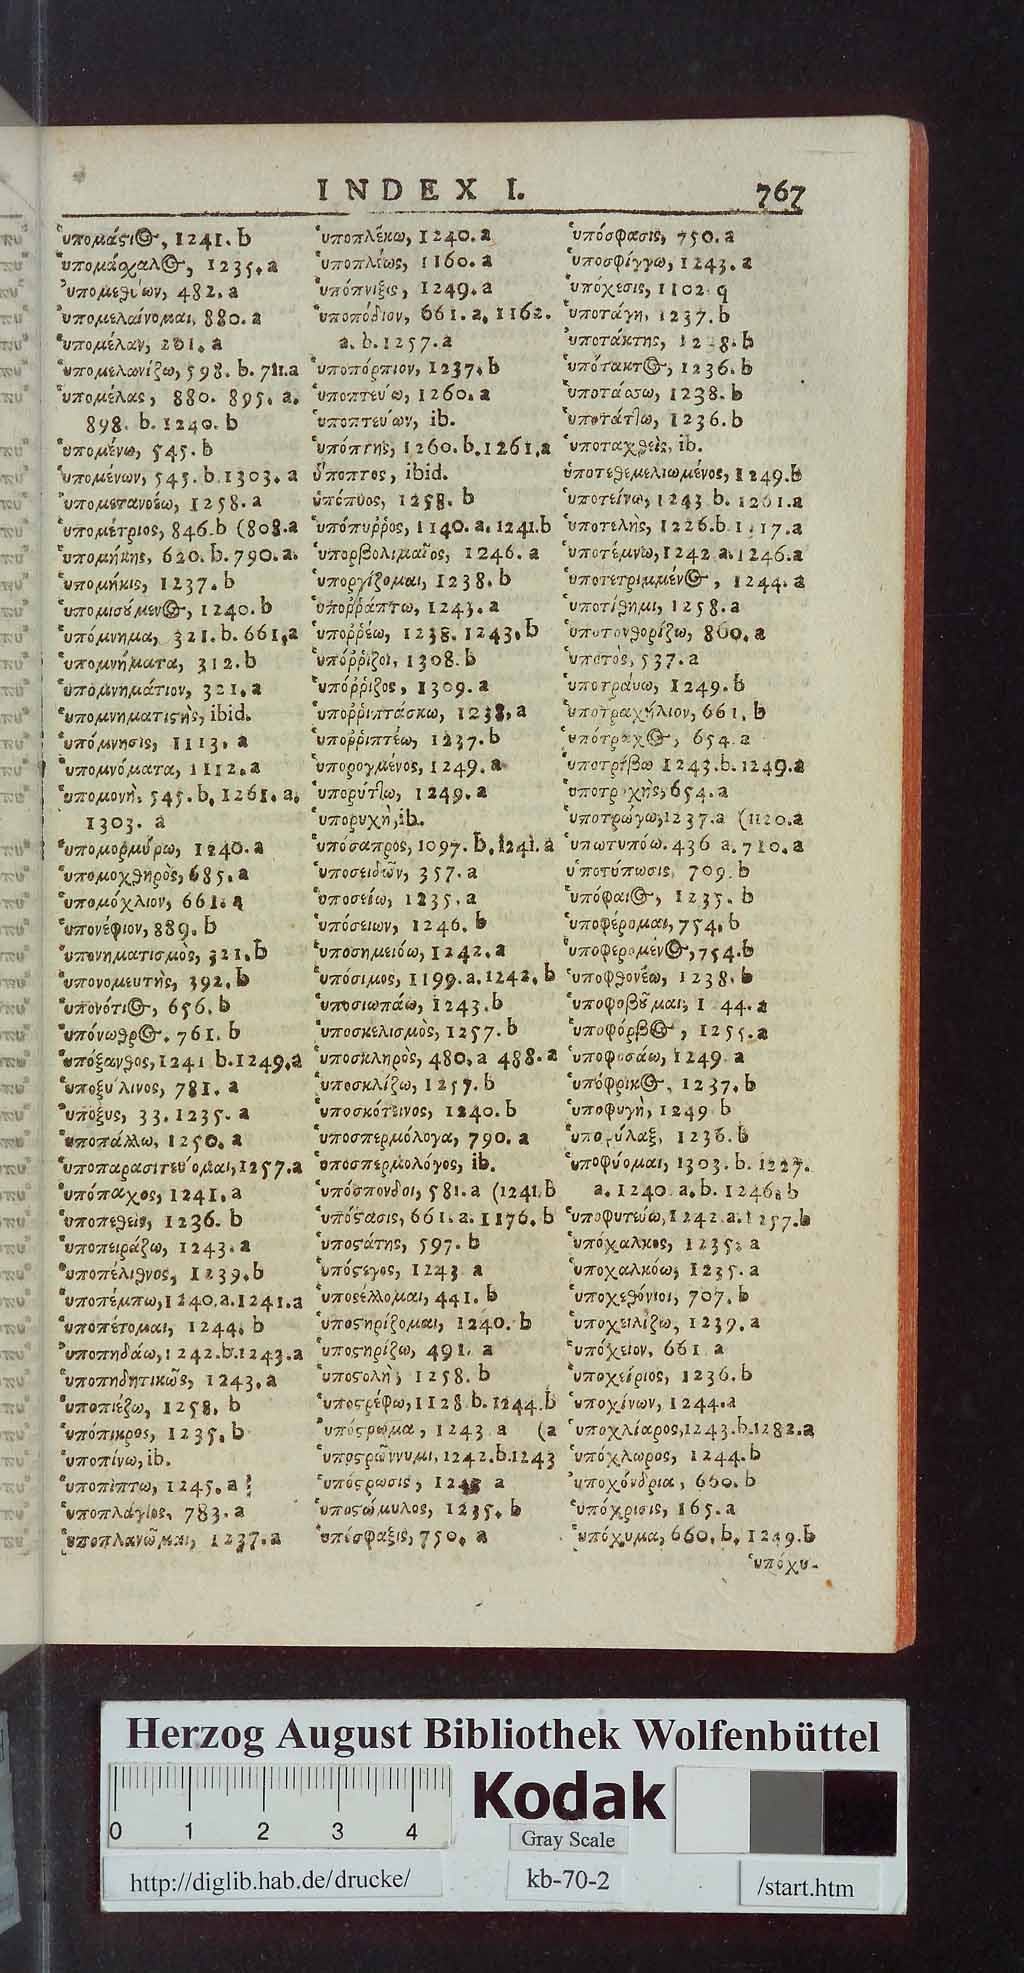 INDEX I. 767
ὑπομάςι⊙, 1241. b
ὑπομάσχαλ⊙, 1235. a
ὑπομεθύων, 482. a
ὑπομελαίνομαι, 880. a
ὑπομέλαν, 261. a
ὑπομελανίζω, 598. b. 711. a
ὑπομέλας, 880. 895. a.
898. b. 1240. b
ὑπομένω, 545. b
ὑπομένων, 545. b. 1303. a
ὑπομετανοέω, 1258. a
ὑπομέτριος, 846. b (808. a
ὑπομήκης, 620. b. 790. a.
ὑπομήκις, 1237. b
ὑπομισούμεν⊙, 1240. b
ὑπόμνημα, 321. b. 661. a
ὑπομνήματα, 312. b
ὑπομνημάτιον, 321. a
ὑπομνηματιςὴς, ibid.
ὑπόμνησις, 1113. a
ὑπομνόματα, 1112. a
ὑπομονὴ, 545. b. 1261. a.
1303. a
ὑπομορμύρω, 1240. a
ὑπομοχθηρὸς, 685. a
ὑπομόχλιον, 661. a
ὑπονέφιον, 889. b
ὑπονηματισμὸς, 321. b
ὑπονομευτὴς, 392. b
ὑπονότι⊙, 656. b
ὑπόνωθρ⊙. 761. b
ὑπόξανθος, 1241 b. 1249. a
ὑποξύλινος, 781. a
ὑποξυς, 33. 1235. a
ὑποπάλλω, 1250. a
ὑποπαρασιτεύομαι, 1257. a
ὑπόπαχος, 1241. a
ὑποπεθεὶς, 1236. b
ὑποπειράζω, 1243. a
ὑποπέλιθνος, 1239. b
ὑποπέμπω, 1240. a. 1241. a
ὑποπέτομαι, 1244. b
ὑποπηδάω, 1242. b. 1243. a
ὑποπηδητικῶς, 1243. a
ὑποπιέζω, 1258. b
ὑπόπικρος, 1235. b
ὑποπίνω, ib.
ὑποπίπτω, 1245. a
ὑποπλάγιος, 783. a
ὑποπλανῶμαι, 1237. a
ὑποπλέκω, 1240. a
ὑποπλέως, 1160. a
ὑπόπνιξις, 1249. a
ὑποπόδιον, 661. a. 1162.
a. b. 1257. a
ὑποπόρπιον, 1237. b
ὑποπτεύω, 1260. a
ὑποπτεύων, ib.
ὑπόπτης, 1260. b. 1261. a
ὕποπτος, ibid.
ὑπόπυος, 1258. b
ὑπόπυῤῥος, 1140. a. 1241. b
ὑπορβολιμαῖος, 1246. a
ὑποργίζομαι, 1238. b
ὑποῤῥάπτω, 1243. a
ὑποῤῥέω, 1238. 1243. b
ὑπόῤῥιζοι, 1308. b
ὑπόῤῥιζος, 1309. a
ὑποῤῥιπτάσκω, 1238. a
ὑποῤῥιπτέω, 1237. b
ὑπορογμένος, 1249. a
ὑπορύτ]ω, 1249. a
ὑπορυχὴ, ib.
ὑπόσαπρος, 1097. b. 1241. a
ὑποσειδῶν, 357. a
ὑποσείω, 1235. a
ὑπόσειων, 1246. b
ὑποσημειόω, 1242. a
ὑπόσιμος, 1199. a. 1242. b
ὑποσιωπάω, 1243. b
ὑποσκελισμὸς, 1257. b
ὑποσκληρὸς, 480. a 488. a
ὑποσκλίζω, 1257. b
ὑποσκότεινος, 1240. b
ὑποσπερμόλογα, 790. a
ὑποσπερμολόγος, ib.
ὑπόσπονδοι, 581. a (1241. b
ὑπόςασις, 661. a. 1176. b
ὑποςάτης, 597. b
ὑπόςεγος, 1243 a
ὑποςέλλομαι, 441. b
ὑποςηρίζομαι, 1240. b
ὑποςηρίζω, 491. a
ὑποςολὴ, 1258. b
ὑποςρέφω, 1128. b. 1244. b
ὑπόςρωμα, 1243 a (a
ὑποςρώννυμι, 1242. b. 1243
ὑπόςρωσις, a
ὑποςώμυλος, 1235. b
ὑπόσφαξις, 750. a
ὑπόσφασις, 750. a
ὑποσφίγγω, 1243. a
ὑπόχεσις, 1102. q
ὑποτάγη, 1237. b
ὑποτάκτης, b
ὑπότακτ⊙, 1236. b
ὑποτάσσω, 1238. b
ὑποτάτ]ω, 1236. b
ὑποταχθεὶς, ib.
ὑποτεθεμελιωμένος, 1249. b
ὑποτείνω, 1243 b. 1261. a
ὑποτελὴς, 1226. b. a
ὑποτέμνω, 1242 a. 1246. a
ὑποτετριμμέν⊙, 1244. a
ὑποτίθημι, 1258. a
ὑποτονθορίζω, 860. a
ὑποτὸς, 537. a
ὑποτραύω, 1249. b
ὑποτραχήλιον, 661. b
ὑπότραχ⊙, 654. a
ὑποτρίβω 1243. b. 1249. a
ὑποτροχὴς, 654. a
ὑποτρώγω, 1237. a (1120. a
ὑπωτυπόω. 436 a. 710. a
ὑποτύπωσις, 709. b
ὑπόφαι⊙, 1235. b
ὑποφέρομαι, 754. b
ὑποφερομέν⊙, 754. b
ὑποφθονέω, 1238. b
ὑποφοβοῦμαι, a
ὑποφόρβ⊙, 1255. a
ὑποφυσάω, 1249. a
ὑπόφρικ⊙, 1237. b
ὑποφυγὴ, 1249 b
ὑποφύλαξ, 1236. b
ὑποφύομαι, 1303. b. 1227.
a. 1240. a. b. 1246. b
ὑποφυτεύω, 1242. a. 1257. b
ὑπόχαλκος, 1235. a
ὑποχαλκόω, 1235. a
ὑποχεθόνιοι, 707. b
ὑποχειλίζω, 1239. a
ὑπόχειον, 661 a
ὑποχείριος, 1236. b
ὑποχίνων, 1244. a
ὑποχλίαρος, 1243. b. 1282. a
ὑπόχλωρος, 1244. b
ὑποχόνδρια, 660. b
ὑπόχρισις, 165. a
ὑπόχυμα, 660. b. 1249. b
ὑπόχυ-
Herzog August Bibliothek Wolfenbüttel
0 1 2 3 4
Kodak
Gray Scale
http://diglib.hab.de/drucke/
kb-70-2
/start.htm